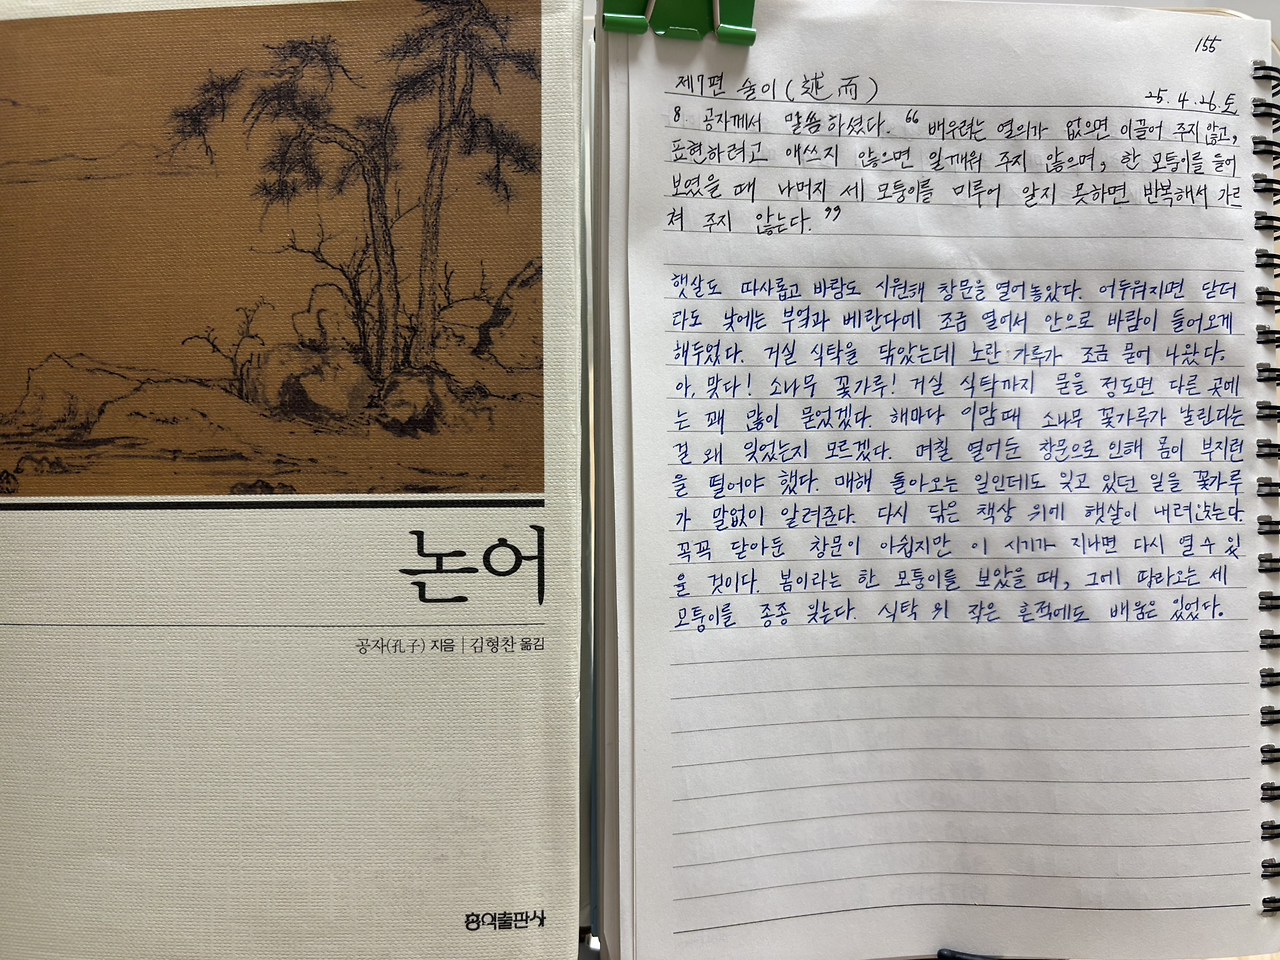 논어
공자(孔子) 지음 | 김형찬 옮김
홍익출판사
155
제7편 술이(述而)
25.4.26.토
8. 공자께서 말씀하셨다. "배우려는 열의가 없으면 이끌어 주지 않고,
표현하려고 애쓰지 않으면 일깨워 주지 않으며, 한 모퉁이를 들어
보였을 때 나머지 세 모퉁이를 미루어 알지 못하면 반복해서 가르
쳐 주지 않는다."
햇살도 따사롭고 바람도 시원해 창문을 열어놓았다. 어두워지면 닫더
라도 낮에는 부엌과 베란다에 조금 열어서 안으로 바람이 들어오게
해두었다. 거실 식탁을 닦았는데 노란 가루가 조금 묻어 나왔다.
아, 맞다! 소나무 꽃가루! 거실 식탁까지 묻을 정도면 다른 곳에
는 꽤 많이 묻었겠다. 해마다 이맘때 소나무 꽃가루가 날린다는
걸 왜 잊었는지 모르겠다. 며칠 열어둔 창문으로 인해 몸이 부지런
을 떨어야 했다. 매해 돌아오는 일인데도 잊고 있던 일을 꽃가루
가 말없이 알려준다. 다시 닦은 책상 위에 햇살이 내려앉는다.
꼭꼭 닫아둔 창문이 아쉽지만 이 시기가 지나면 다시 열 수 있
을 것이다. 봄이라는 한 모퉁이를 보았을 때, 그에 따라오는 세
모퉁이를 종종 잊는다. 식탁 위 작은 흔적에도 배움은 있었다.